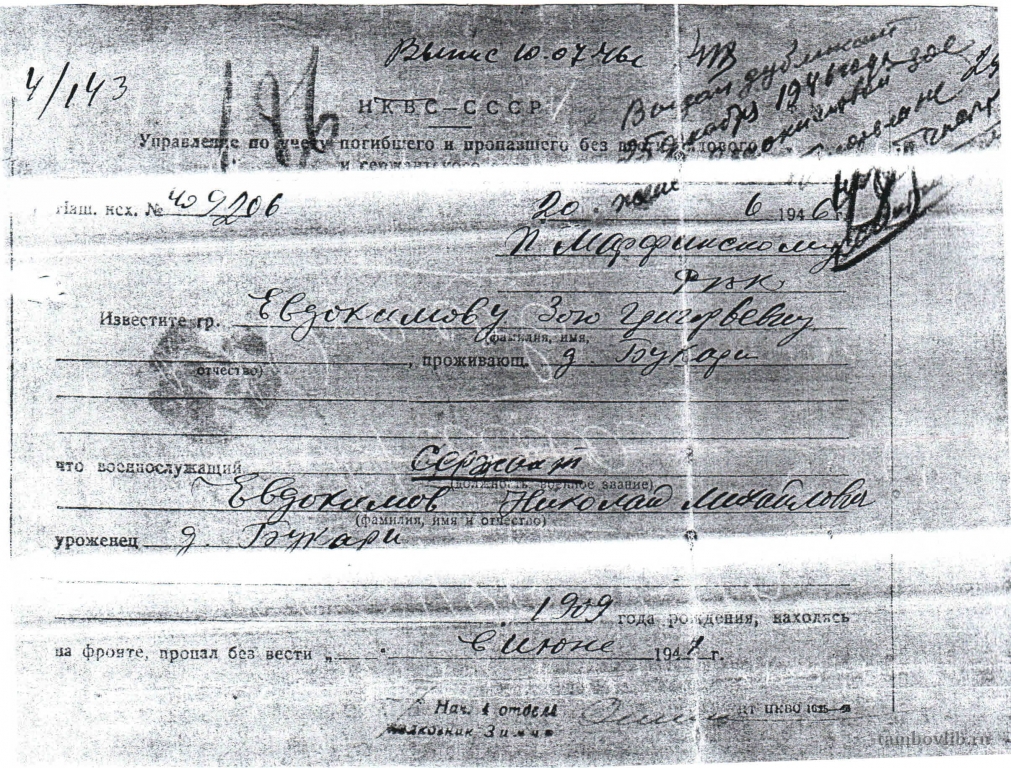 4/143
196
Выпис 10.07.46г
НКВС—СССР
Выдан дубликат
25 декабря 1946 года
Зое
Управление по учету погибшего и пропавшего без вести рядового
и сержантского
Наш. исх. № 409206
20. июня 6 1946 г.
П Марфинскому
РВК
Известите гр. Евдокимову Зою Григорьевну
(фамилия, имя,
, проживающ. д. Букари
отчество)
что военнослужащий Сержант
(должность военное звание)
Евдокимов Николай Михайлович
(фамилия, имя и отчество)
уроженец д. Букари
1909 года рождения, находясь
на фронте, пропал без вести „ “ в июне 194 г.
Нач. 1 отдела
полковник Зимин
tambovlib.ru